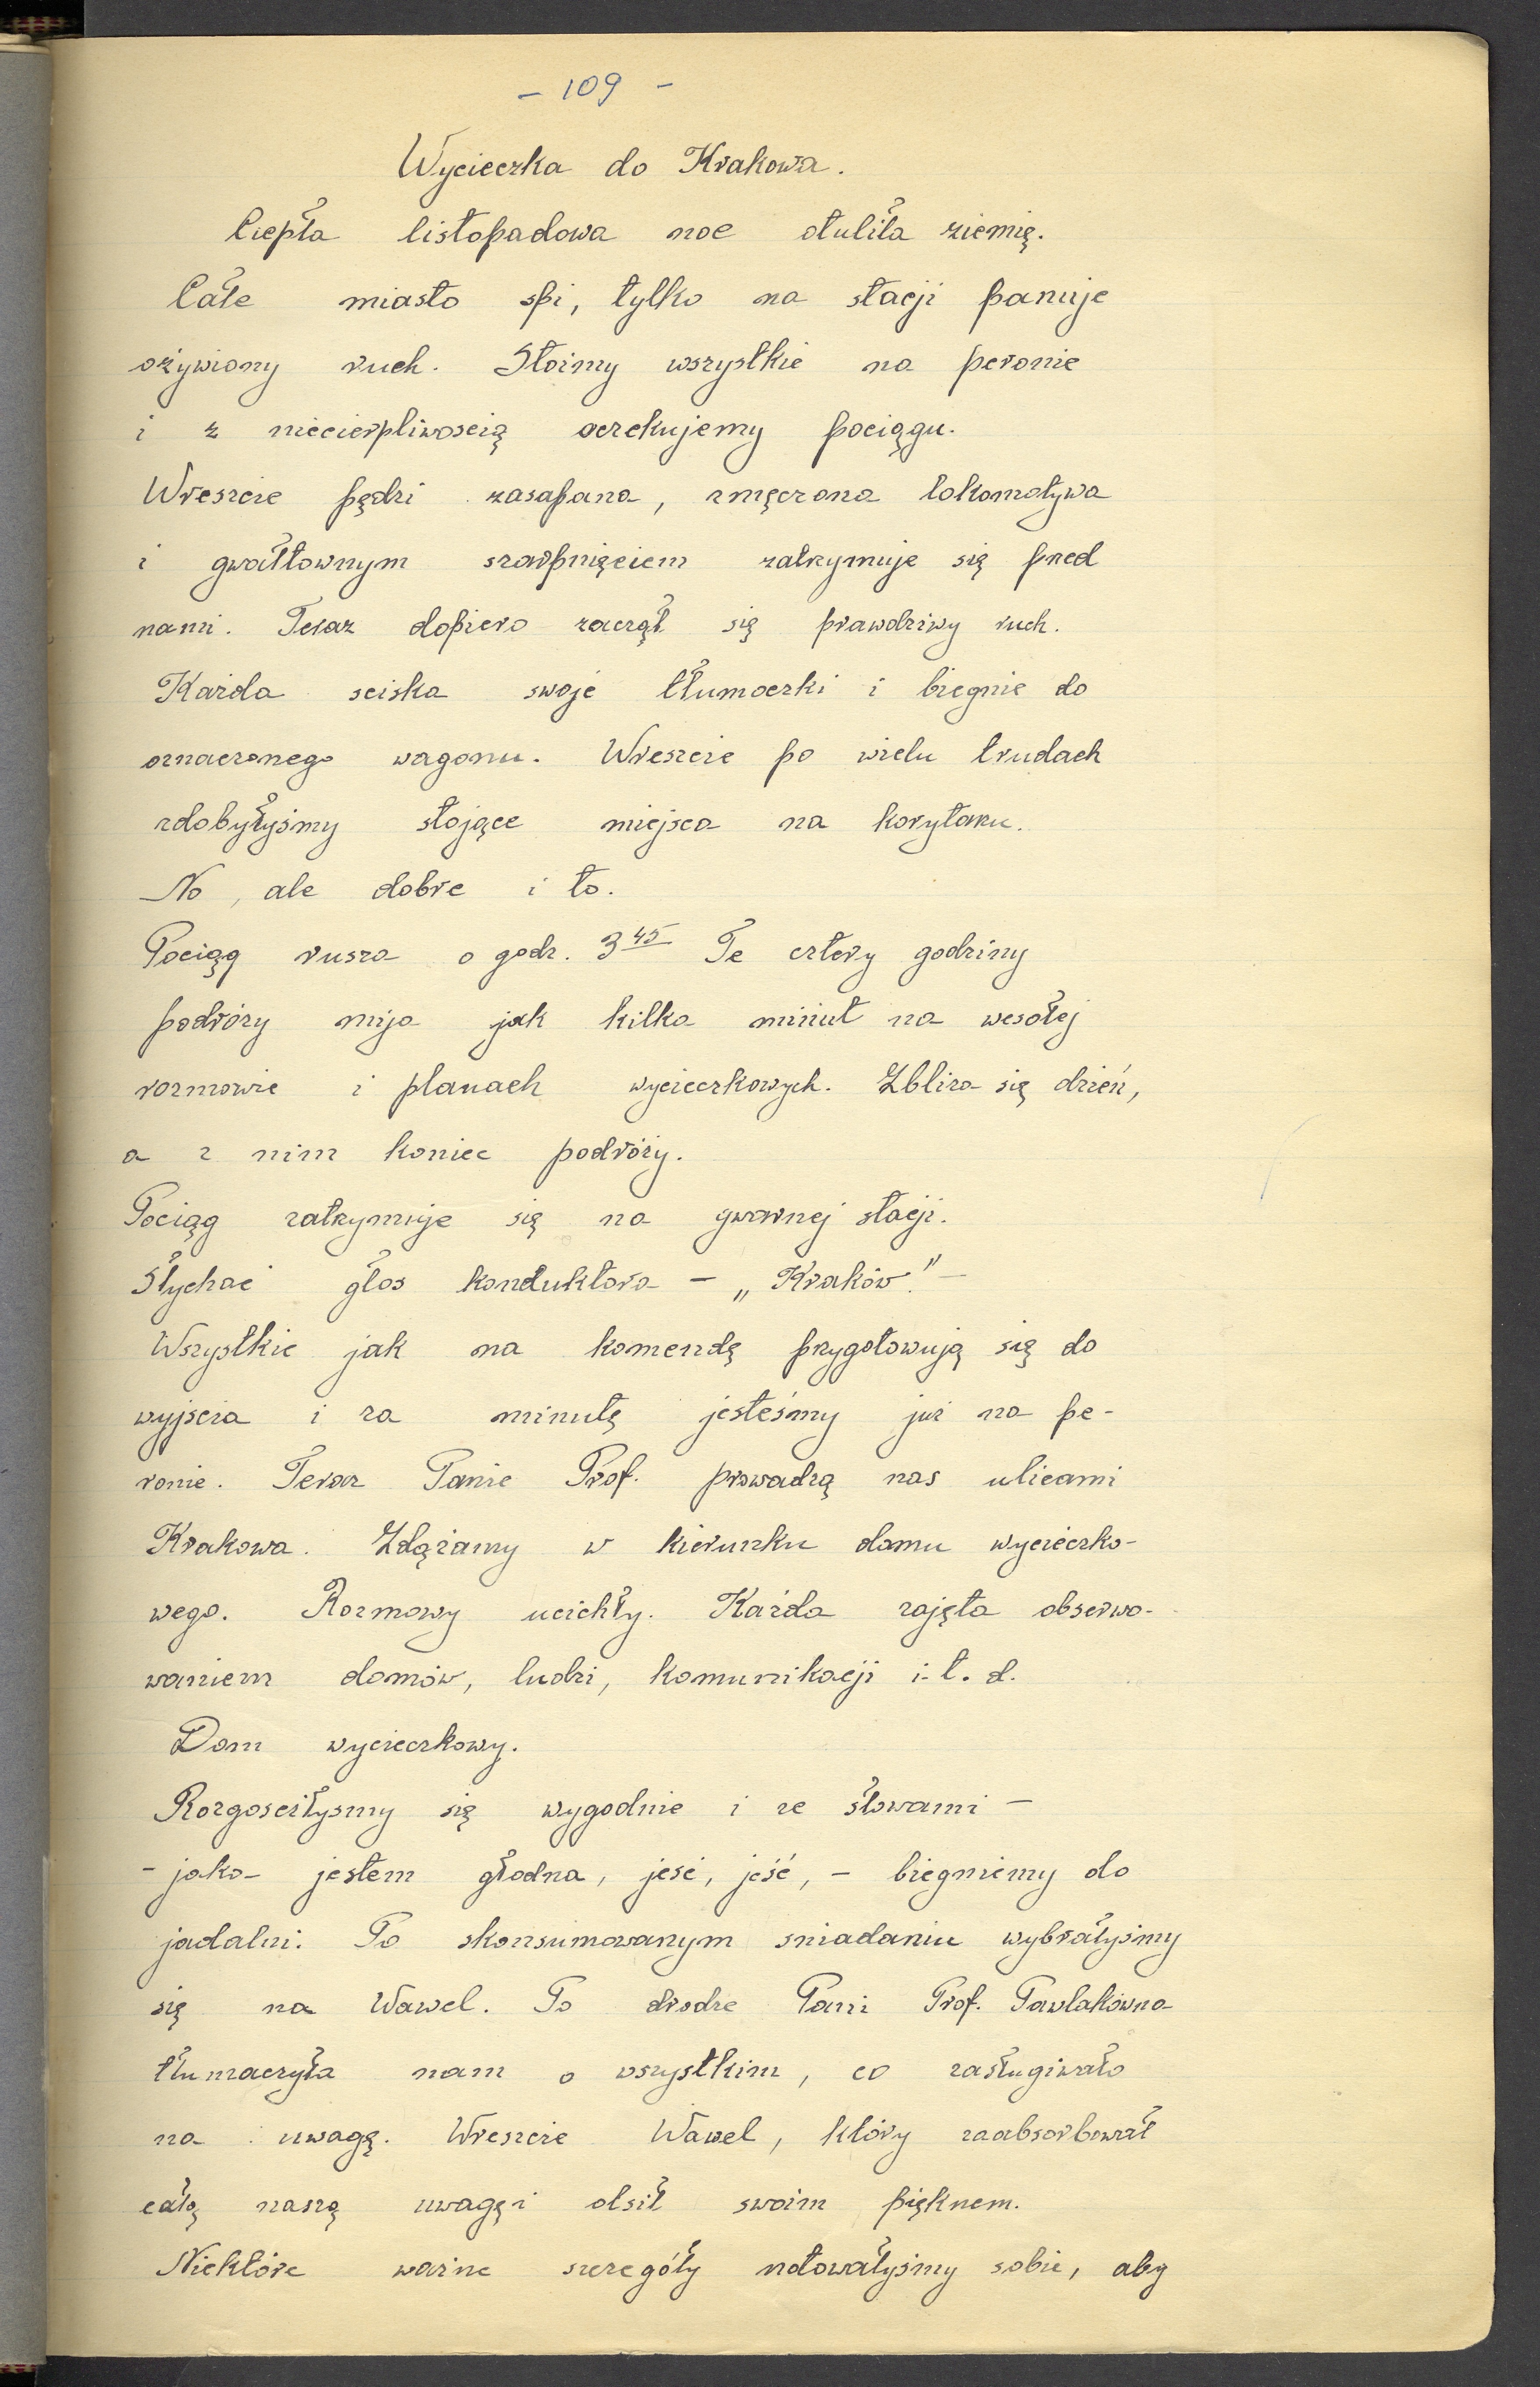 - 109 -
Wycieczka do Krakowa.
Ciepła listopadowa noc otuliła ziemię.
Całe miasto spi, tylko na stacji panuje
ożywiony ruch. Stoimy wszystkie na peronie
i z niecierpliwoscią oczekujemy pociągu.
Wreszcie pędzi zasapana, zmęczona lokomotywa
i gwałtownym szarpnięciem zatrzymuje się przed
nami. Teraz dopiero zaczął się prawdziwy ruch.
Każda sciska swoje tłumoczki i biegnie do
oznaczonego wagonu. Wreszcie po wielu trudach
zdobyłyśmy stojące miejsca na korytarzu.
No, ale dobre i to.
Pociąg rusza o godz. 3 45 Te cztery godziny
podróży mija jak kilka minut na wesołej
rozmowie i planach wycieczkowych. Zbliża się dzień,
a z nim koniec podróży.
Pociąg zatrzymuje się na gwarnej stacji.
Słychać głos konduktora - „Kraków." -
Wszystkie jak na komendę przygotowują się do
wyjscia i za minutę jesteśmy już na pe-
ronie. Teraz Panie Prof. prowadzą nas ulicami
Krakowa. Zdążamy w kierunku domu wycieczko-
wego. Rozmowy ucichły. Każda zajęta obserwo-
waniem domów, ludzi, komunikacji i. t. d.
Dom wycieczkowy.
Rozgosciłysmy się wygodnie i ze słowami -
- jaka jestem głodna, jeść, jeść, - biegniemy do
jadalni. Po skonsumowanym sniadaniu wybrałyśmy
się na Wawel. Po drodze Pani Prof. Pawlakówna
tłumaczyła nam o wszystkim, co zasługiwało
na uwagę. Wreszcie Wawel, który zaabsorbował
całą naszą uwagę i olsił swoim pięknem.
Niektóre ważne szczegóły notowałyśmy sobie, aby